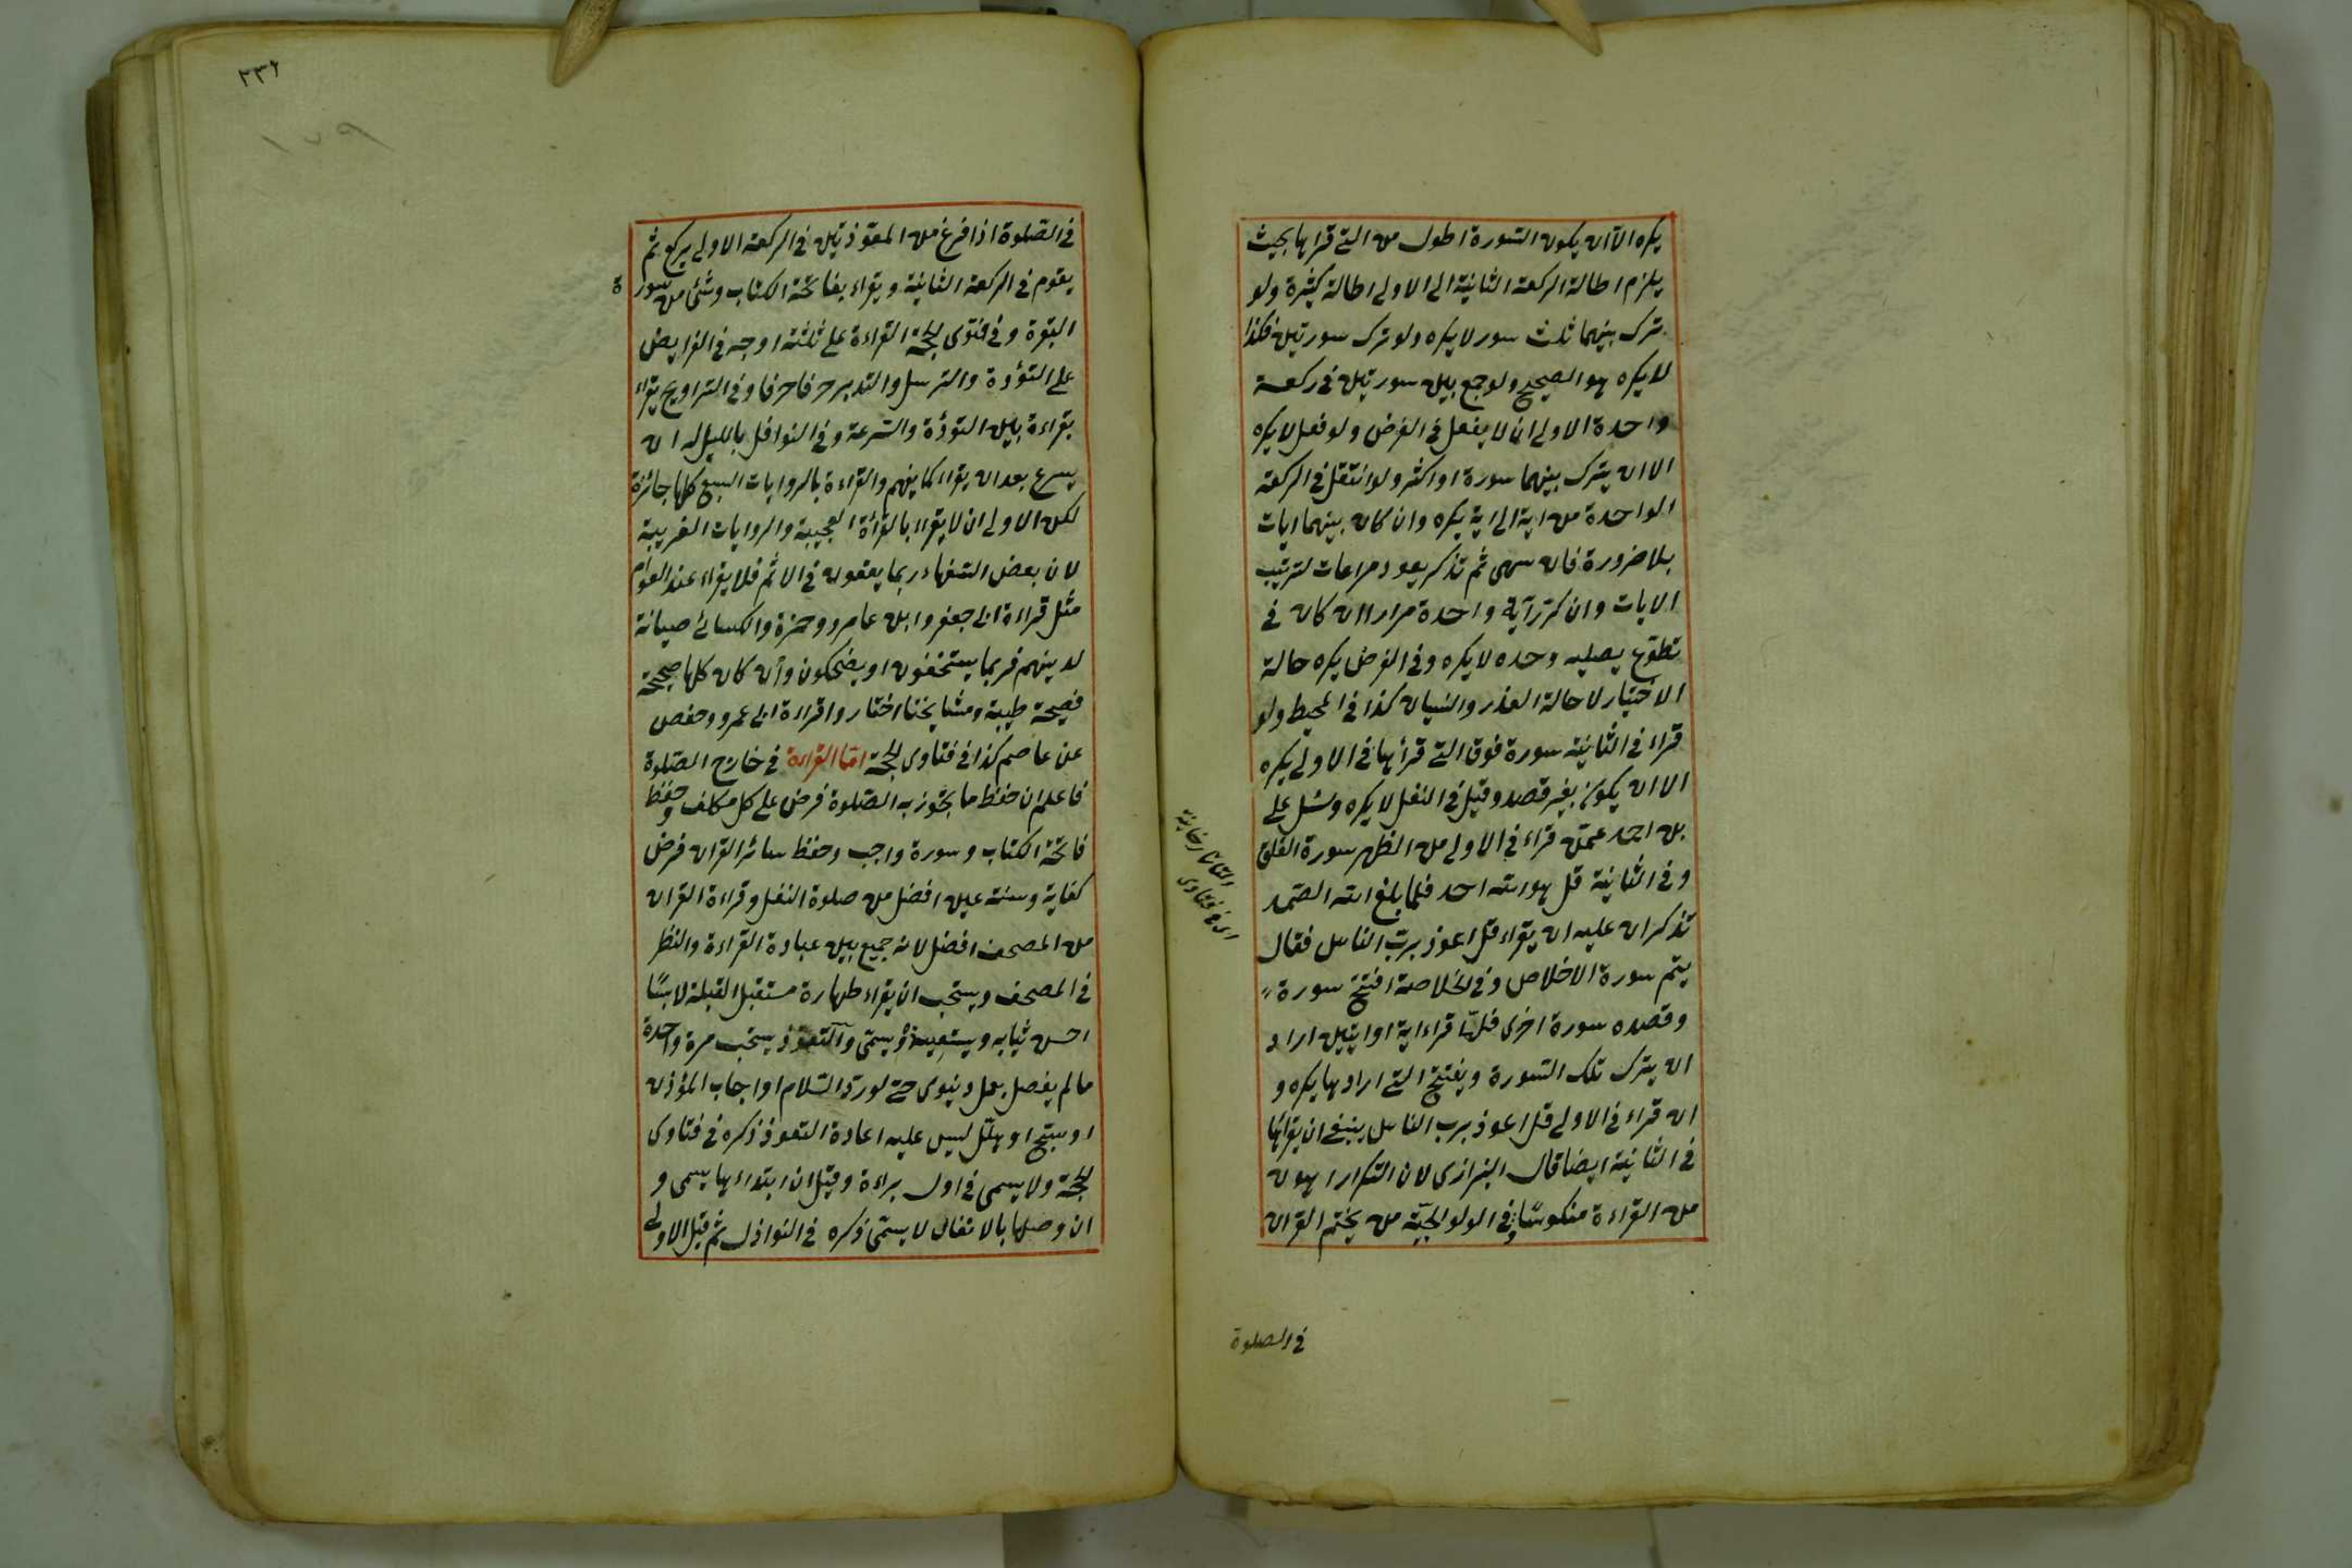 يكره الا ان يكون السورة اطول من التي قراها بحيث
يلزم اطالة الركعة الثانية الى الاولى اطالة كثيرة ولو
ترك بينهما ثلث سور لا يكره ولو ترك سورتين فكذا
لا يكره هو الصحيح ولو جمع بين سورتين في ركعة
واحدة الاولى ان لا يفعل في الفرض ولو فعل لا يكره
الا ان يترك بينهما سورة او اكثر ولو انتقل في الركعة
الواحدة من اية الى اية يكره وان كان بينهما ايات
بلا ضرورة فان سهى ثم تذكر يعود مراعات لترتيب
الايات وان كرّر آية واحدة مرارا ان كان في
تطوّع يصليه وحده لا يكره وفي الفرض يكره حالة
الاختيار لا حالة العذر والنسيان كذا في المحيط ولو
قراء في الثانية سورة فوق التي قرأها في الاولى يكره
الا ان يكون بغير قصد وقيل في النفل لا يكره وسئل على
بن احمد عمّن قراء في الاولى من الظهر سورة الفلق
وفي الثانية قل هو الله احد فلما بلغ الله الصّمد
تذكر ان عليه ان يقراء قل اعوذ بربّ الناس فقال
يتم سورة الاخلاص وفي الخلاصة افتتح سورة
وقصده سورة اخرى فلمّا قراء اية او ايتين اراد
ان يترك تلك السّورة ويفتتح التي ارادها يكره و
ان قراء في الاولى قل اعوذ برب الناس ينبغي ان يقرأها
في الثانية ايضا قال البزازى لان التكرار اهون
من القراءة منكوسًا وفي الولوالجيّة من يختم القران
التاتارخانية
في فتاوى
في الصلوة
٢٣٦
١٧٩
في الصّلوة اذا فرغ من المعوّذتين في الركعة الاولى يركع ثم
يقوم في الركعة الثانية ويقراء بفاتحة الكتاب وشئ من سورة
البقرة وفي فتوى الحجّة القراءة على ثلثة اوجه في الفرايض
على التؤدة والترسل والتدبر حرفا حرفا وفي التراويح يقراء
بقراءة بين التؤدة والسّرعة وفي النوافل بالليل له ان
يسرع بعد ان يقراء كما يفهم والقراءة بالروايات السبع كلها جائزة
لكن الاولى ان لا يقراء بالقرأة العجيبة والروايات الغريبة
لان بعض السّفهاء ربما يقعون في الاثم فلا يقراء عند العوام
مثل قراءة ابى جعفر وابن عامر وحمزة والكسائى صيانة
لدينهم فربما يستخفون او يضحكون وان كان كلها صحيحة
فصيحة طيبة ومشايخنا اختاروا قراءة ابى عمرو وحفص
عن عاصم كذا في فتاوى الحجّة امّا القراءة في خارج الصّلوة
فاعلم ان حفظ ما يجوز به الصّلوة فرض على كل مكلف وحفظ
فاتحة الكتاب وسورة واجب وحفظ سائر القران فرض
كفاية وسنة عين افضل من صلوة النفل وقراءة القران
من المصحف افضل لانه جميع بين عبادة القراءة والنظر
في المصحف ويستحب ان يقراء طهارة مستقبل القبلة لابسًا
احسن ثيابه ويستعيذ ويسمّى والتعوّذ يستحب مرة واحدة
ما لم يفصل بعمل دنيوى حتى لو ردّ السّلام او اجاب المؤذن
او سبّح او هلّل ليس عليه اعادة التعوذ ذكره في فتاوى
الحجّة ولا يسمى في اول براءة وقيل ان ابتداء بها يسمى و
ان وصلها بالانفال لا يسمّى ذكره في النوازل ثم قيل الاولى